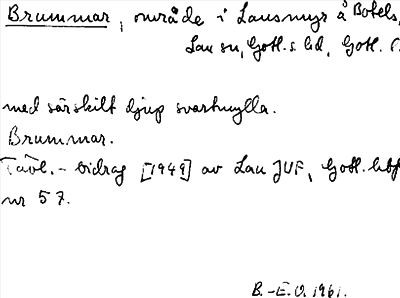 Brummar, område i Lausmyr å Botels,
Lau sn, Gotl. s. hd, Gotl.
med särskilt djup svartmylla.
Brummar.
Tävl.-bidrag [1949] av Lau JUF, Gotl. hbf
nr 57.
B.-E.O. 1961.